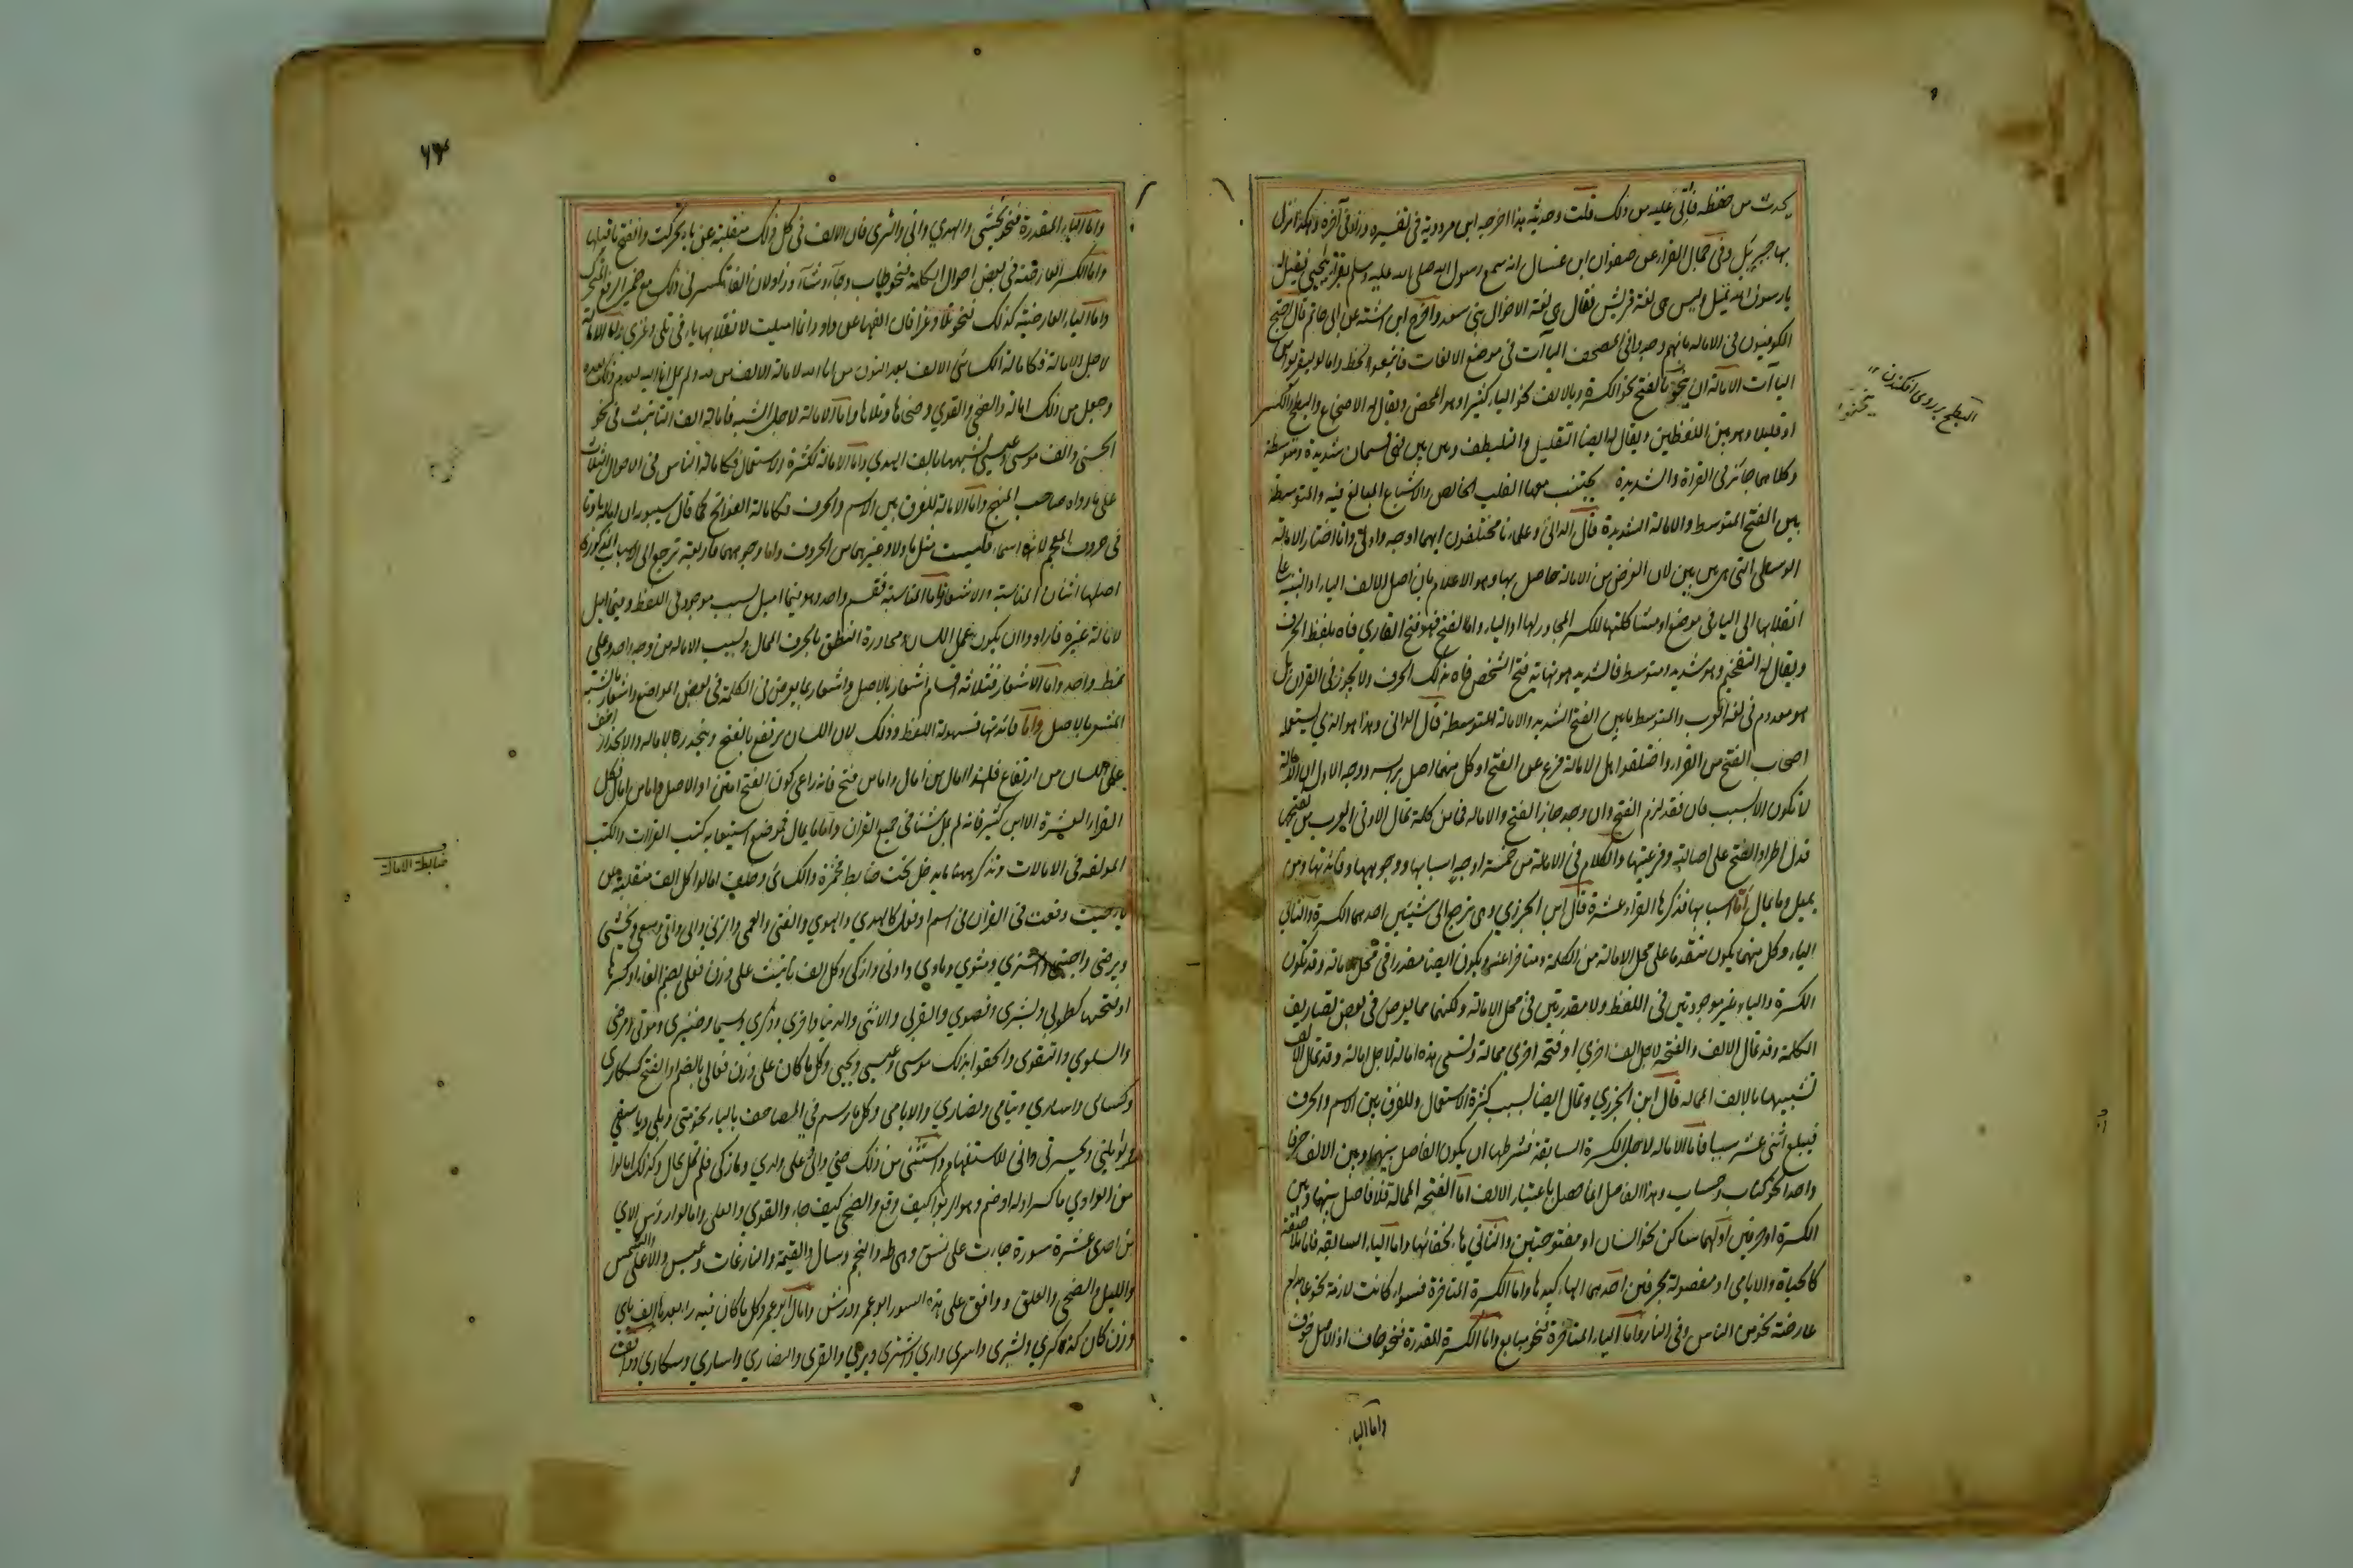 يحدث من حفظه فاتى عليه من ذلك قلت وحديثه هذا اخرجه ابن مردوية فى تفسيره وزاد فى آخره وهكذا انزل
بها جبريل وفى جمال القراء عن صفوان ابن عسال انه سمع رسول الله صلى الله عليه وسلم يقرأ يا يحيى فقيل له
يا رسول الله تميل وليس هى لغة قريش فقال هى لغة الاخوال بنى سعد واخرج ابن اشته عن ابى حاتم قال احتج
الكوفيون فى الاماله بانهم وجدوا فى المصحف الياآت فى موضع الالفات فاتبعوا الخط وامالو ليقربوا من
الياآت الامالة ان ينحو بالفتح نحو الكسرة وبالالف نحو الياء كثيرا وهو المحض ويقال له الاضجاع والبطح والكسر
او قليلا وهو بين اللفظين ويقال له ايضا التقليل والتلطيف وبين بين فهى قسمان شديدة ومتوسطة
وكلاهما جائز فى القراة والشديدة يجتنب معها القلب الخالص والاشباع المبالغ فيه والمتوسطة
بين الفتح المتوسط والامالة الشديدة قال الدانى وعلماءنا مختلفون ايهما اوجه واولى وانا اختار الامالة
الوسطى التى هى بين بين لان الغرض من الامالة حاصل بها وهو الاعلام بان اصل الالف الياء او التنبيه على
انقلابها الى الياء فى موضع او مشاكلتها للكسر المجاور لها او الياء واما الفتح فهو فتح القارى فاه بلفظ الحرف
ويقال له التفخيم وهو شديد ومتوسط فالشديد هو نهاية فتح الشخص فاه بذلك الحرف ولا يجوز فى القران بل
هو معدوم فى لغة العرب والمتوسط ما بين الفتح الشديد والامالة المتوسطة قال الدانى وهذا هو الذي يستعمله
اصحاب الفتح من القراء واختلفوا هل الامالة فرع عن الفتح او كل منهما اصل براسه ووجه الاول ان الامالة
لا تكون الا لسبب فان فقد لزم الفتح وان وجد جاز الفتح والاماله فما من كلمة تمال الا وفى العرب من يفتحها
فدل اطراد الفتح على اصالته وفرعيتها والكلام فى الامالة من خمسة اوجه اسبابها ووجوهها وفائدتها ومن
يميل وما يمال اما اسبابها فذكرها القراء عشرة قال ابن الجزري وهى ترجع الى شيئين احدهما الكسرة والثانى
الياء وكل منهما يكون متقدما على محل الامالة من الكلمة ومتاخرا عنه ويكون ايضا مقدرا فى محل الامالة وقد تكون
الكسرة والياء غير موجودتين فى اللفظ ولا مقدرتين فى محل الامالة ولكنهما مما يعرض فى بعض تصاريف
الكلمة وقد تمال الالف والفتحة لاجل الف اخرى او فتحة اخرى ممالة وتسمى هذه امالة لاجل امالة وقد تمال الالف
تشبيها بالالف المماله قال ابن الجزري وتمال ايضا لسبب كثرة الاستعمال وللفرق بين الاسم والحرف
فيبلغ اثنى عشر سببا فاما الاماله لاجل الكسرة السابقة فشرطها ان يكون الفاصل بينهما وبين الالف حرفا
واحدا نحو كتاب وحساب وهذا الفاصل انما حصل باعتبار الالف اما الفتحة الممالة فلا فاصل بينها وبين
الكسرة او حرفين اولهما ساكن نحو انسان او مفتوحتين والثاني هاء لخفائها واما الياء السابقة فاما ملاصقة
كالحياة والايامى او مفصولة بحرفين احدهما الهاء كيدها واما الكسرة المتاخرة فسواء كانت لازمة نحو عابد ام
عارضة نحو من الناس وفى النار واما الياء المتاخرة فنحو مبايع واما الكسرة المقدرة فنحو خاف اذ الاصل خوف
واما الياء
البطح بر روى افكندن
واما الياء المقدرة فنحو يخشى والهدي واتى والثرى فان الالف فى كل ذلك منقلبة عن ياء تحركت وانفتح ما قبلها
واما الكسر العارضة فى بعض احوال الكلمة فنحو طاب وجاء وشاء وزاد لان الفاء تكسر فى ذلك مع ضمير الرفع المتحرك
واما الياء العارضية كذلك فنحو تلا وغزا فان الفهما عن واو وانما اميلت لانقلابها ياء فى تلى وغزى واما الامالة
لاجل الامالة فكامالة الكسائى الالف بعد النون من انا لله لامالة الالف من لله ولم يمل انا اليه لعدم ذلك بعده
وجعل من ذلك امالة والضحى والقوي وضحاها وتلاها واما الامالة لاجل الشبه فامالة الف التانيث فى نحو
الحسنى والف موسى وعيسى لشبهها بالف الهدي واما الامالة لكثرة الاستعمال فكامالة الناس فى الاحوال الثلاث
على ما رواه صاحب المبهج واما الامالة للفرق بين الاسم والحرف فكامالة الفواتح كما قال سيبويه ان امالة باوتا
فى حروف المعجم لانها اسماء فليست مثل ما ولا وغيرهما من الحروف واما وجوهها فاربعة ترجع الى الاسباب المذكورة
اصلها اثنان المناسبة والاشعار واما المناسبة فقسم واحد وهو فيما اميل لسبب موجود فى اللفظ وفيما اميل
لامالة غيره فارادوا ان يكون عمل اللسان ومجاورة النطق بالحرف الممال ولسبب الاماله من وجه واحد وعلى
نمط واحد واما الاشعار فثلاثة اقسام اشعار بالاصل واشعار بما يعرض فى الكلمة فى بعض المواضع واشعار بالشبه
المشعر بالاصل واما فائدتها فسهولة اللفظ وذلك لان اللسان يرتفع بالفتح وينحدر بالامالة والانحدار اخف
على اللسان من ارتفاع فلهذا امال من امال واما من فتح فانه راعى كون الفتح امتن او الاصل واما من امال فكل
القراء العشرة الا ابن كثير فانه لم يمل شيئا فى جميع القران واما ما يمال فموضع استيعابه كتب القراات والكتب
المولفة فى الامالات ونذكر ههنا ما يدخل تحت ضابط فحمزة والكسائى وخلف امالوا كل الف منقلبة عن
ياء حيث وقعت فى القران فى اسم او فعل كالهدي والهوي والفتى والعمى والزنى واتى وابى وسعى ويخشى
ويرضى واجتبى واشترى ومثوي وماوي وادنى وازكى وكل الف تانيث على وزن فعلى بضم الفاء او كسرها
او فتحها كطوبى وبشرى وقصوي والقربى والانثى والدنيا واخري وذكري وسيما وضيزى وموتى ومرضى
والسلوي والتقوى والحقوا بذلك موسى وعيسى ويحيى وكل ما كان على وزن فعالى بالضم او الفتح كسكارى
وكسالى واسارى ويتامى ونصاري والايامى وكل ما رسم فى المصاحف بالياء نحو متى وبلى ويا اسفى
ويا ويلتى ويا حسرتى وانى للاستفهام واستثنى من ذلك حتى والى وعلى ولدي وما زكى فلم تمل بحال وكذلك امالوا
من الواوي ما كسر اوله او ضم وهو الربوا كيف وقع والضحى كيف جاء والقوي والعلى وامالوا روس الاي
من احدى عشرة سورة جاءت على نسق وهى طه والنجم وسال والقيمة والنازعات وعبس والاعلى والشمس
والليل والضحى والعلق ووافق على هذه السور ابو عمرو وورش وامال ابو عمرو كل ما كان فيه راء بعدها الف باي
وزن كان كذكري وبشرى واسرى واري واشترى ويرى والقرى والنصاري واساري وسكاري ووافقه
ضابطة الامالة